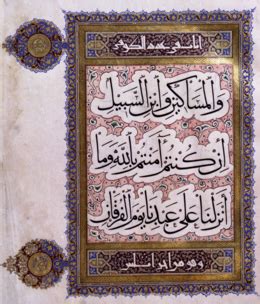 والمساكين وابن السبيل
ان كنتم امنتم بالله وما
انزلنا على عبدنا يوم الفرقان